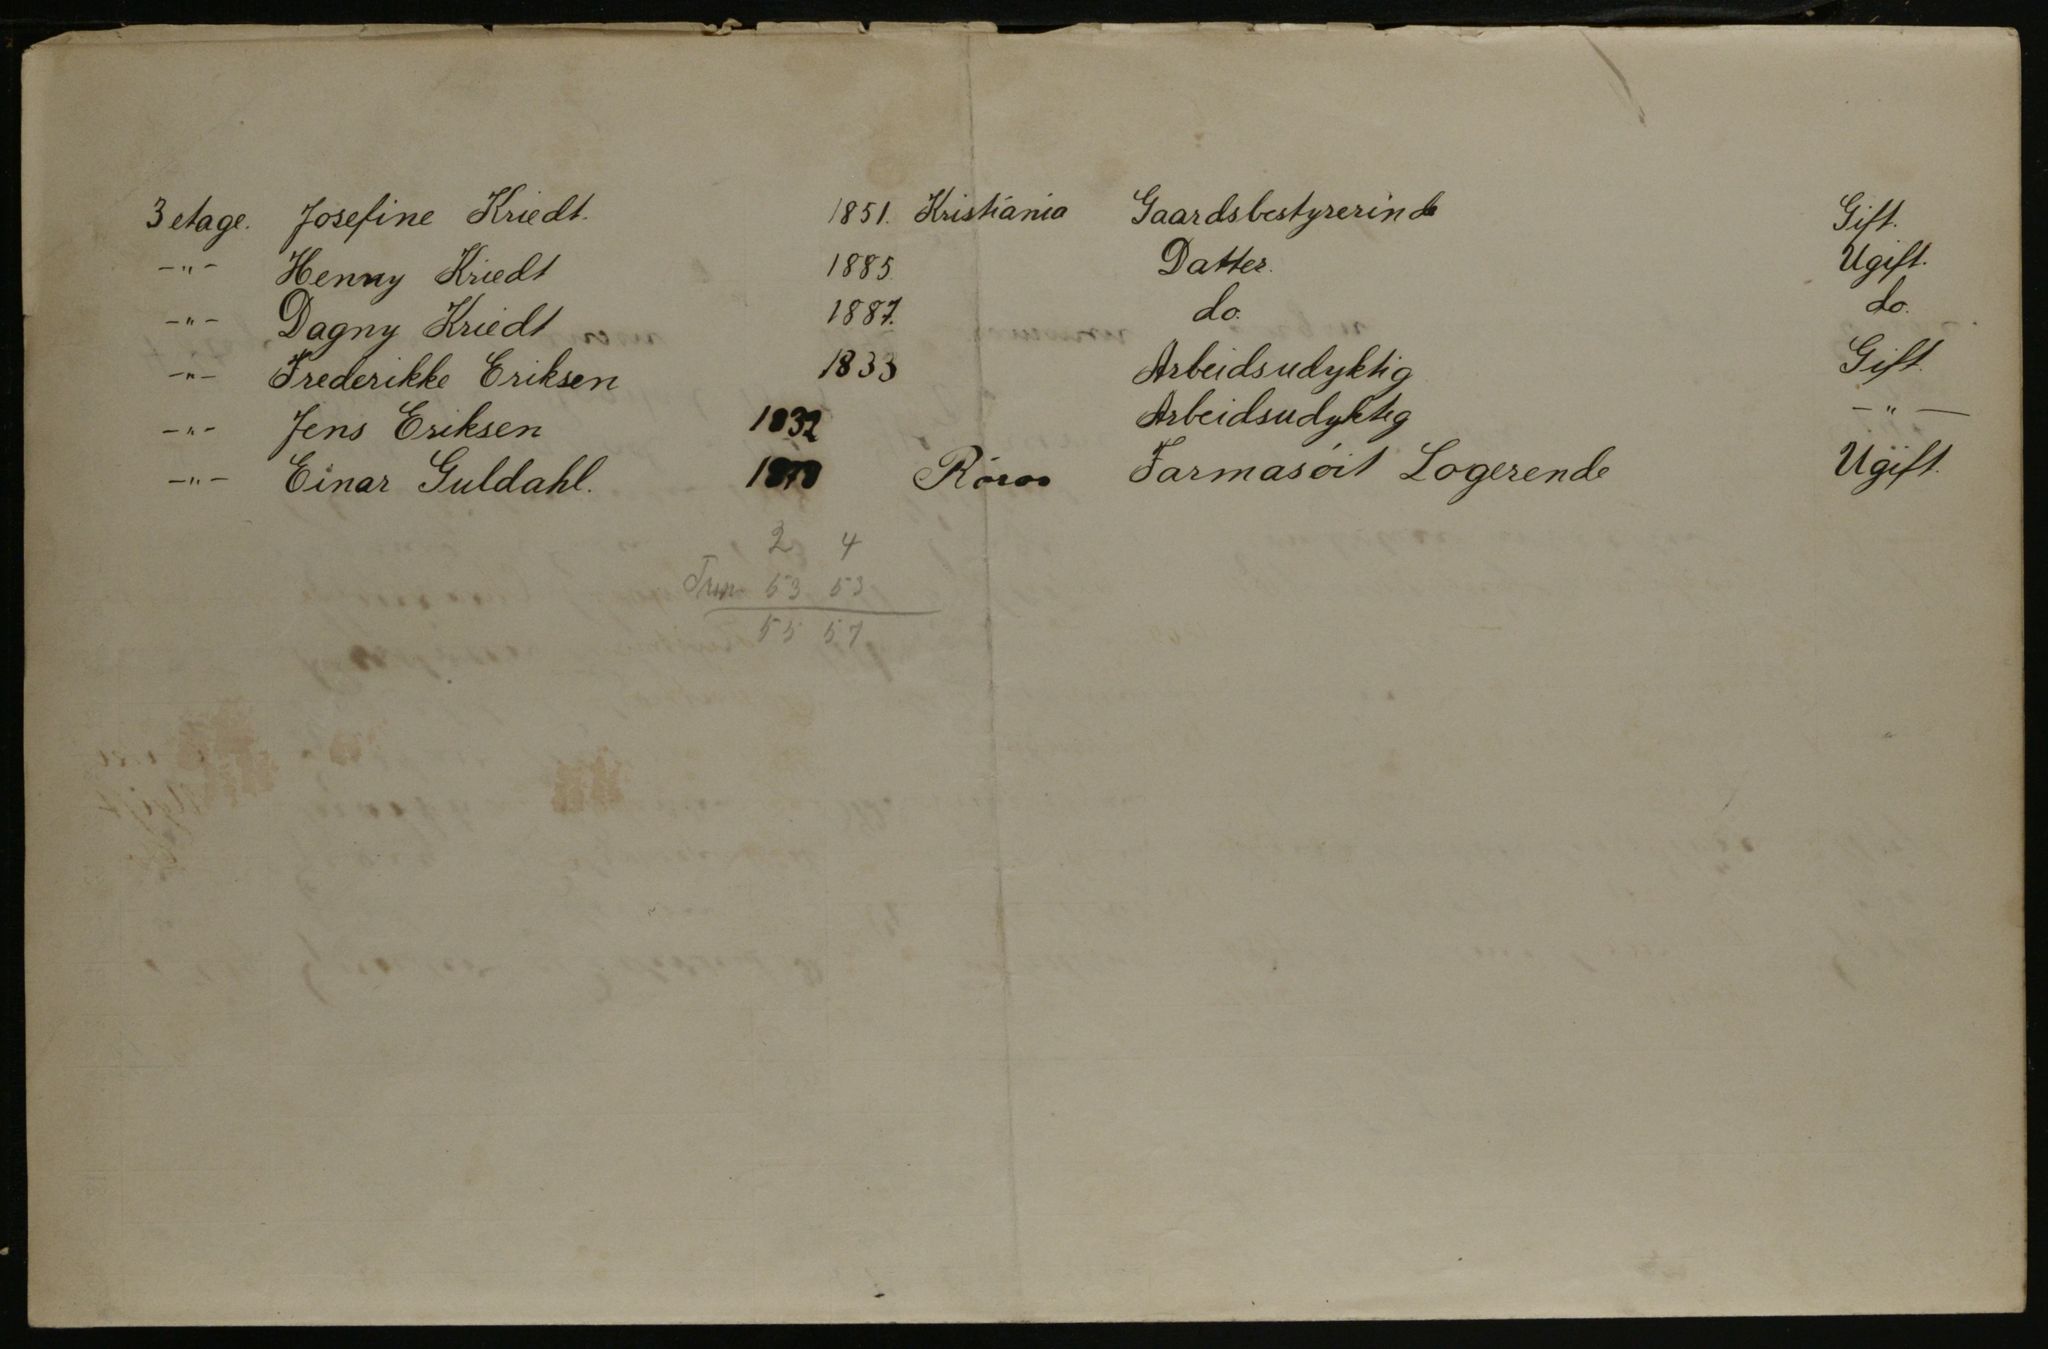 3 etage. Josefine Kriedt. 1851. Kristiania Gaardsbestyrerinde Gift.
-"- Henny Kriedt 1885. Datter. Ugift.
-"- Dagny Kriedt 1887. do. do.
-"- Frederikke Eriksen 1833 Arbeidsudyktig Gift.
-"- Jens Eriksen 1832 Arbeidsudyktig -"-
-"- Einar Guldahl. Röros Farmasöit Logerende Ugift.
2 4
53 53
55 57